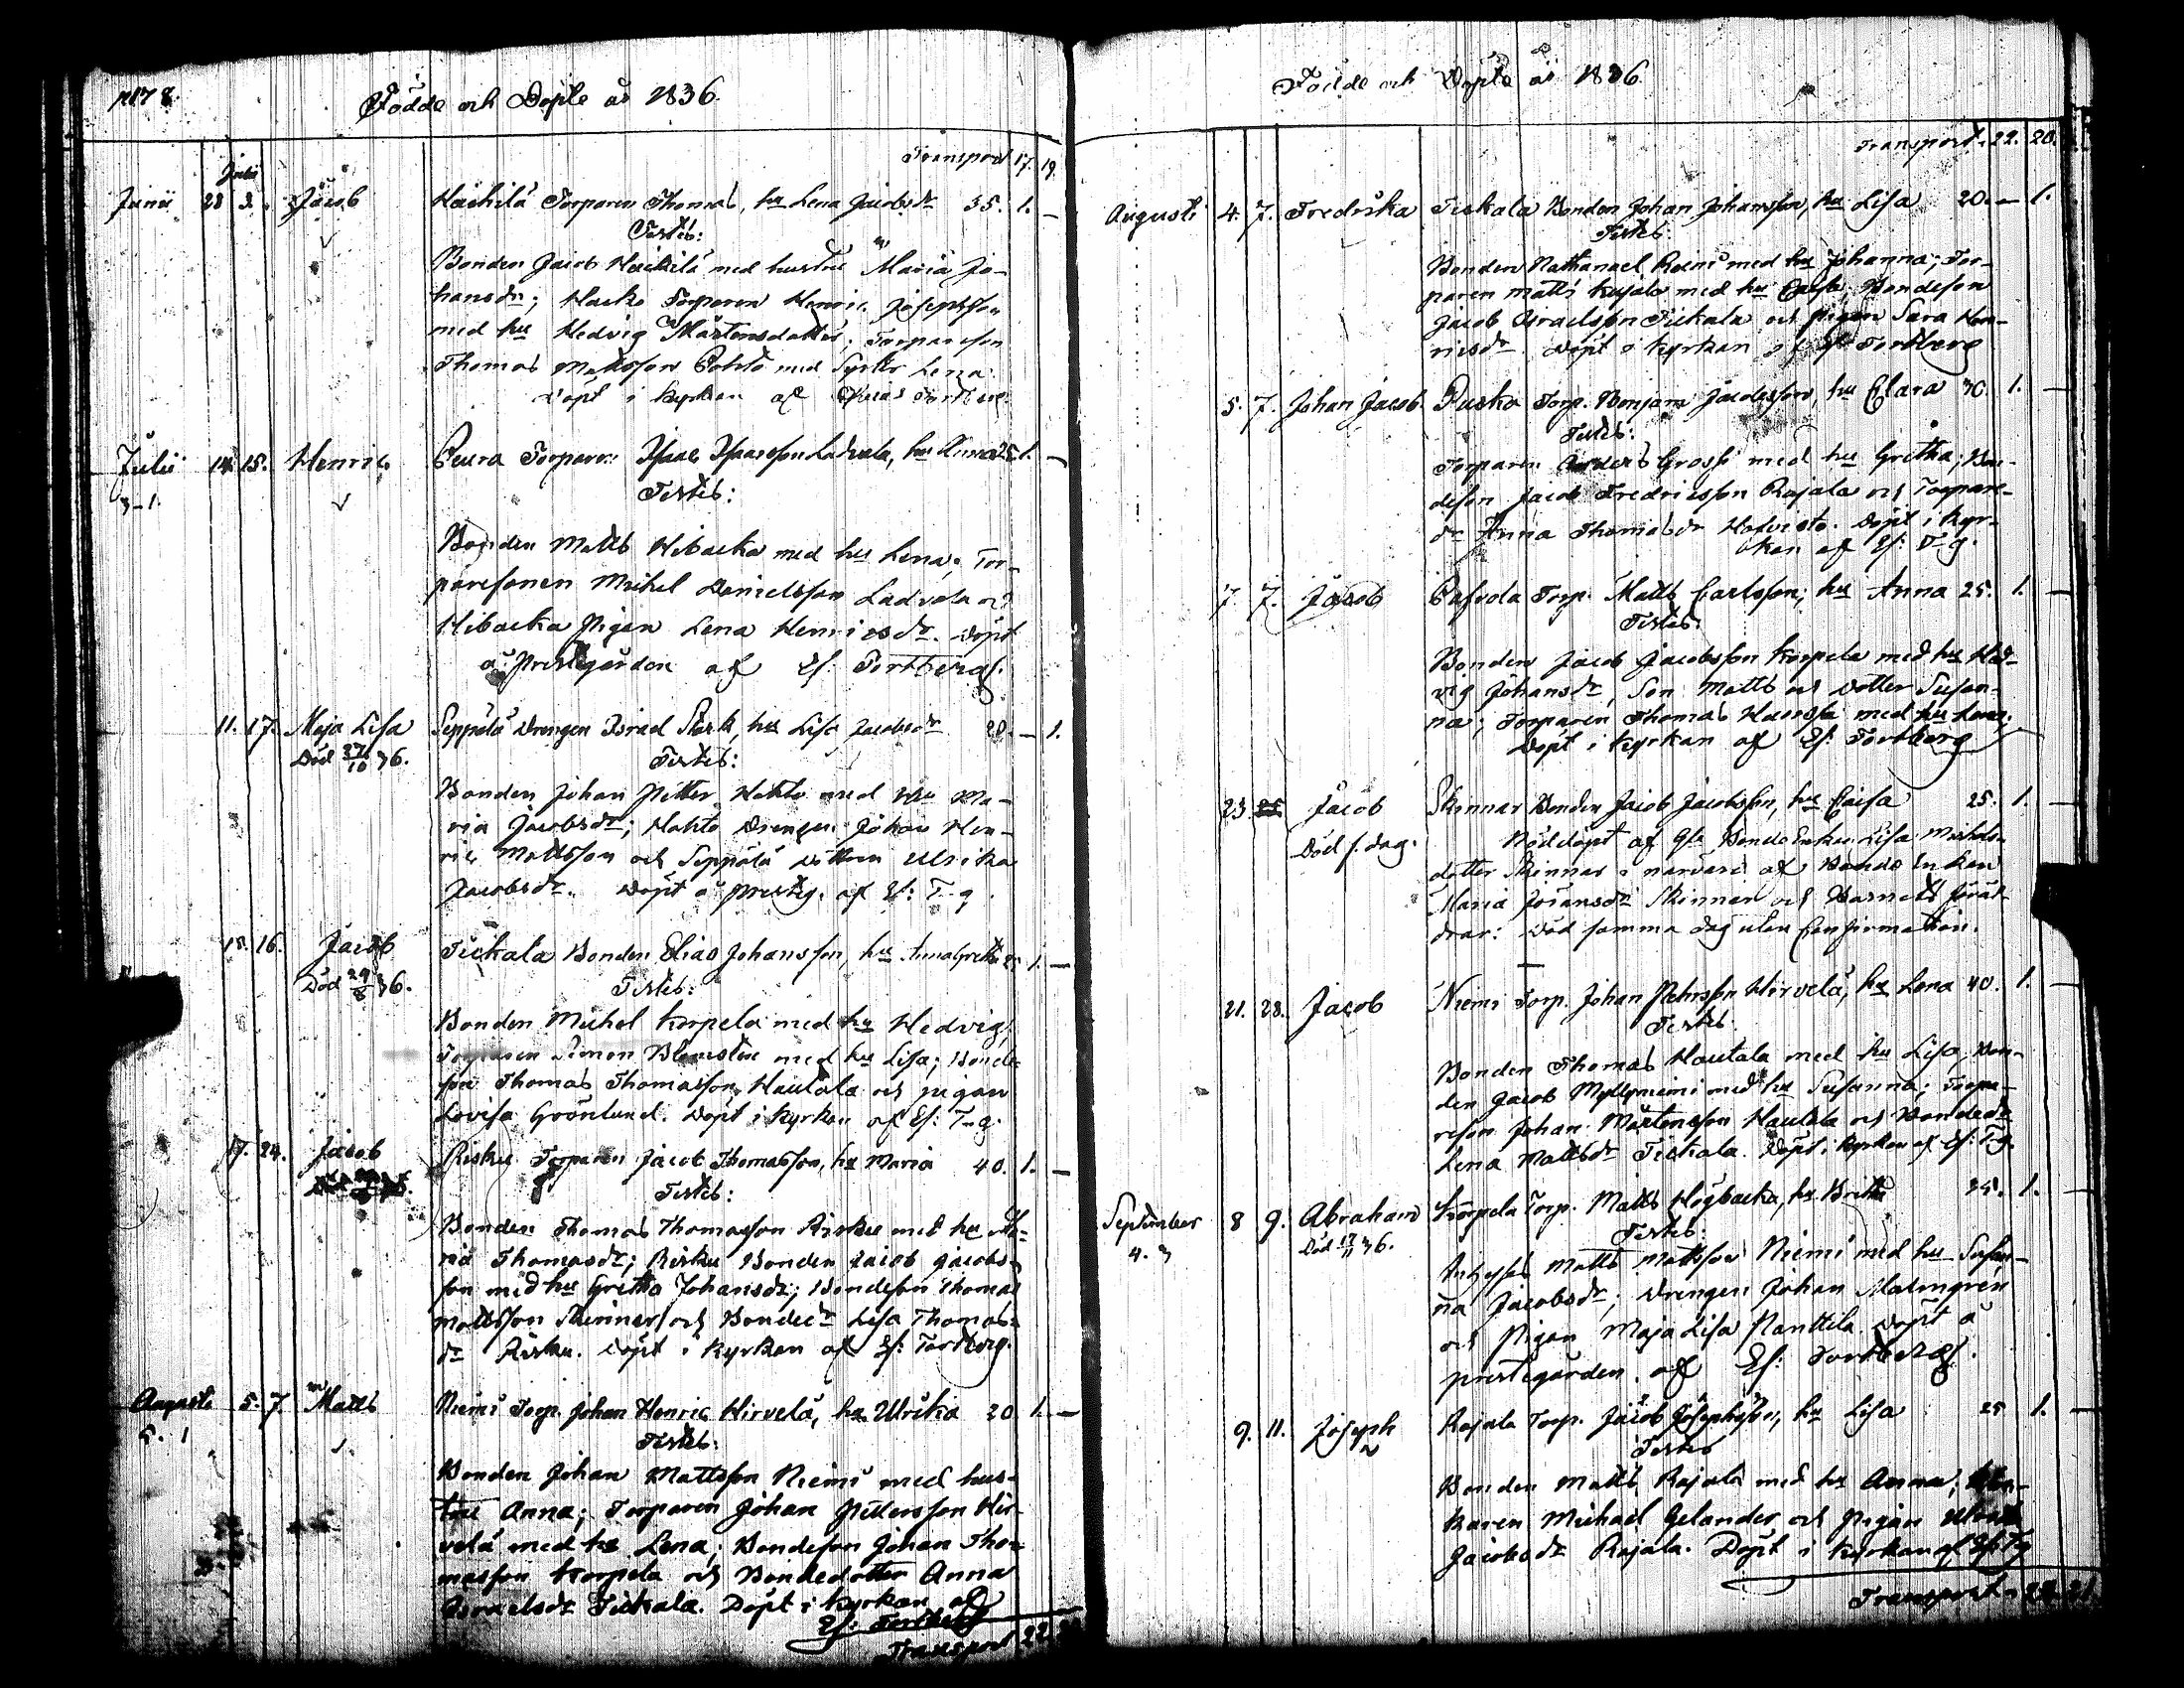 Födde och Döpte år 1836.
Transport 17. 19.
Julii
Junii 28 2. Jacob Torparen Thomas, hu Lena Jacobsdr 35. 1. –
Testes:
Bonden Jacob med hustru Maria Jo-
hansdr; Torparen Henric Josephsson
med hu Hedvig Mårtensdotter; Torpareson
Thomas Mattsson med Syster Lena.
Döpt i kyrkan af
Julii 14. 15. Henric Peura Torparen Isaac Isaacsson Ladvala, hu Anna 25. 1. –
3 – 1.
Testes:
Bonden Matts Hibacka med hu Lena; Tor-
paresonen Michel Danielsson Ladvala och
Hibacka Pigan Lena Henricsdr. Döpt
å Prestegården af Ef: Tortberg.
11. 17. Maja Lisa Seppälä Drengen Israel Stark, hu Lisa Jacobsdr 28. – 1.
Död 27/10 36.
Testes:
Bonden Johan Petter Hohto med hu Ma-
ria Jacobsdr; Hohto Drengen Johan Hen-
ric Mattsson och Seppälä Dottren Ulrika
Jacobsdr. Döpt å prestg. af Ef: T-g.
15. 16. Jacob Tickala Bonden Elias Johansson, hu Anna Gretha 25 1. –
Död 29/8 36.
Testes:
Bonden Michel Korpela med hu Hedvig;
Torparen Simon med hu Lisa; Bonde-
son Thomas Thomasson Hautala och pigan
Lovisa Grönlund. Döpt i kyrkan af Ef: T-g.
17. 24. Jacob Risku Torparen Jacob Thomasson, hu Maria 40. 1. –
Testes:
Bonden Thomas Thomasson Risku med hu Ma-
ria Thomasdr; Risku Bonden Jacob Jacobs-
son med hu Gretha Johansdr; Bondeson Thomas
Mattsson Skinnar och Bondedr Lisa Thomas-
dr Risku. Döpt i kyrkan af Ef: Tortberg.
Augusti 5. 7. Matts Niemi Torp. Johan Henric Hirvelä, hu Ulrika 20 1. –
5. 1
Testes:
Bonden Johan Mattsson Niemi med hus-
tru Anna; Torparen Johan Pettersson Hir-
velä med hu Lena; Bondeson Johan Tho-
masson Korpela och Bondedotter Anna
Israelsdr Tickala. Döpt i kyrkan af
Ef: Tortberg
Transport 22
Födde och Döpte år 1836.
Transport. 22. 20.
Augusti 4. 7. Fredrika Tickala Bonden Johan Johansson, hu Lisa 20. – 1.
Testes
Bonden Nathanael med hu Johanna; Tor-
paren Matts med hu Bondeson
Jacob Israelsson Tickala och pigan Sara Hen-
ricsdr Döpt i kyrkan af Ef Tortberg
5. 7. Johan Jacob. Torp. Benjam Jacobsson, hu Clara 30. 1. –
Testes:
Torparen Anders Gross med hu Gretha; Bon-
deson Jacob Fredricsson Rajala och Torpare-
dr Anna Thomasdr Döpt i kyr-
kan af Ef: T-g.
7. 7. Jacob Torp. Matts Carlsson; hu Anna 25. 1. –
Testes:
Bonden Jacob Jacobsson Korpela med hu Hed-
vig Johansdr, Son Matts och Dotter Susan-
na; Torparen Thomas med hu Lena;
Döpt i kyrkan af Ef: Tortberg
23. Jacob Skinnar Bonden Jacob Jacobsson, hu Caisa 25. 1. –
Död s. dag.
Nöddöpt af Gla Bonde Enkan Lisa Michels-
dotter Skinnar i närvaro af Bonde Enkan
Maria Göransdr Skinnar och Barnets föräl-
drar: Död samma dag utan Confirmation.
21. 28. Jacob Niemi Torp. Johan Pehrsson Hirvelä, hu Lena 40. 1. –
Testes
Bonden Thomas Hautala med hu Lisa, Bon-
den Jacob Myllyniemi med hu Susanna; Torpa-
reson Johan Mårtensson Hautala och Bondedr
Lena Mattsdr Tickala. Döpt i kyrkan af Ef: T-g.
September 8 9. Abraham Korpela Torp. Matts Högbacka, hu Britha 25. 1. –
4. 3
Död 17/11 36.
Testes:
Inhyses Matts Mattsson Niemi med hu Susan-
na Jacobsdr; Drengen Johan Malmgren
och Pigan Maja Lisa Panttila. Döpt å
prestegården. af Ef: Tortberg.
9. 11. Joseph Rajala Torp. Jacob Josephsson, hu Lisa 25 1. –
Testes
Bonden Matts Rajala med hu Anna;
Michael Gelander och Pigan
Jacobsdr Rajala. Döpt i kyrkan af Ef: Tg
Transport